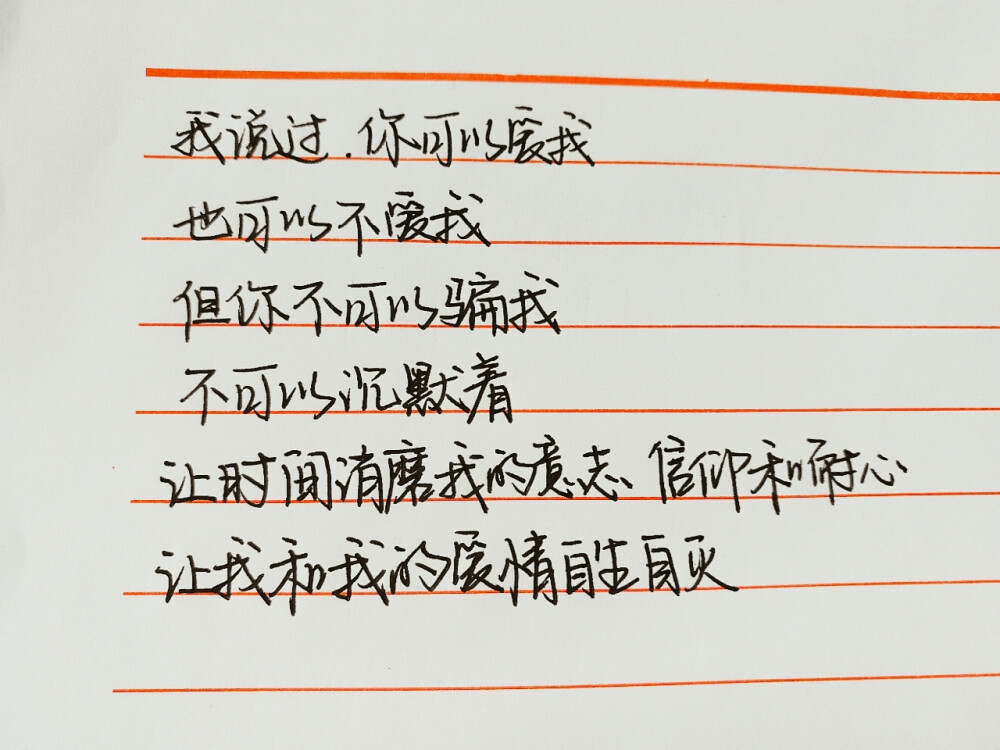 我说过.你可以爱我
也可以不爱我
但你不可以骗我
不可以沉默着
让时间消磨我的意志 信仰和耐心
让我和我的爱情自生自灭